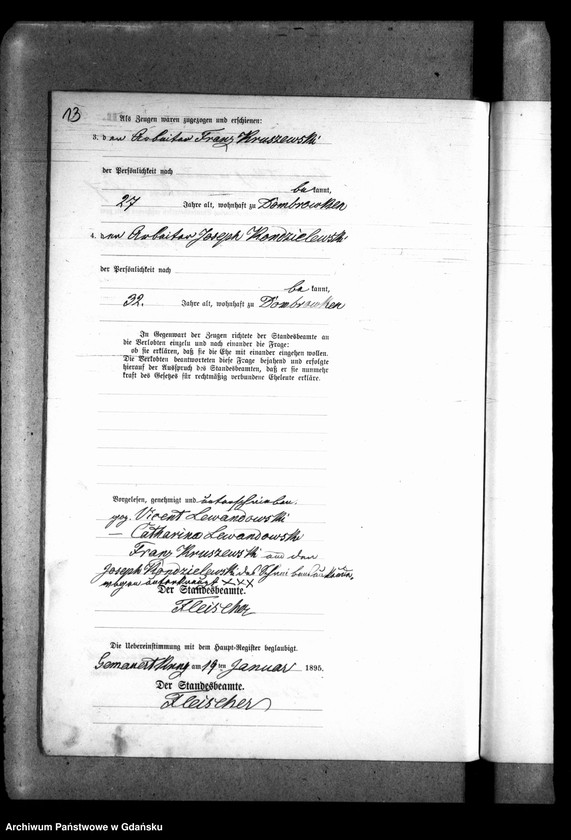 13
Als Zeugen waren zugezogen und erschienen:
3. der Arbeiter Franz Kruszewski
der Persönlichkeit nach
be kannt,
27 Jahre alt, wohnhaft zu Dombrowken
4. der Arbeiter Joseph Kondzielewski
der Persönlichkeit nach
be kannt,
32. Jahre alt, wohnhaft zu Dombrowken
In Gegenwart der Zeugen richtete der Standesbeamte an
die Verlobten einzeln und nach einander die Frage:
ob sie erklären, daß sie die Ehe mit einander eingehen wollen.
Die Verlobten beantworteten diese Frage bejahend und erfolgte
hierauf der Ausspruch des Standesbeamten, daß er sie nunmehr
kraft des Gesetzes für rechtmäßig verbundene Eheleute erkläre.
Vorgelesen, genehmigt und unterschrieben.
gez. Vicent Lewandowski
— Catharina Lewandowski
Franz Kruszewski
Joseph Kondzielewski des
wegen unterkreuzt XXX
Der Standesbeamte.
Fleischer
Die Uebereinstimmung mit dem Haupt-Register beglaubigt.
am 19 ten Januar 1895.
Der Standesbeamte.
Fleischer
Archiwum Państwowe w Gdańsku